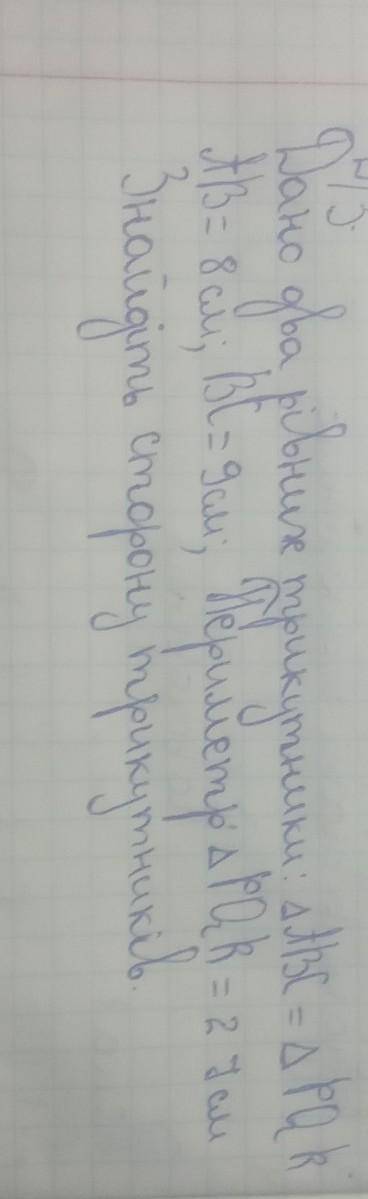 Д/З.
Дано два рівних трикутники: △ABC = △PQR.
AB = 8 см; BC = 9 см; Периметр △PQR = 27 см
Знайдіть сторону трикутників.